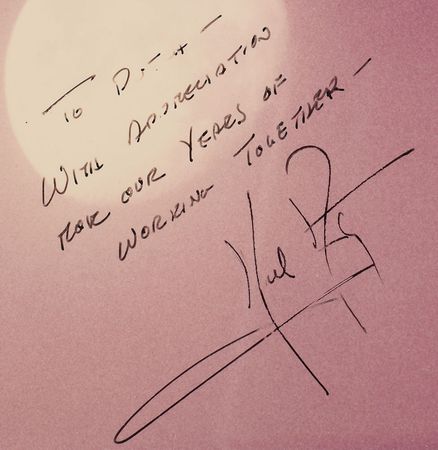 To
With Appreciation
for our Years of
Working Together -